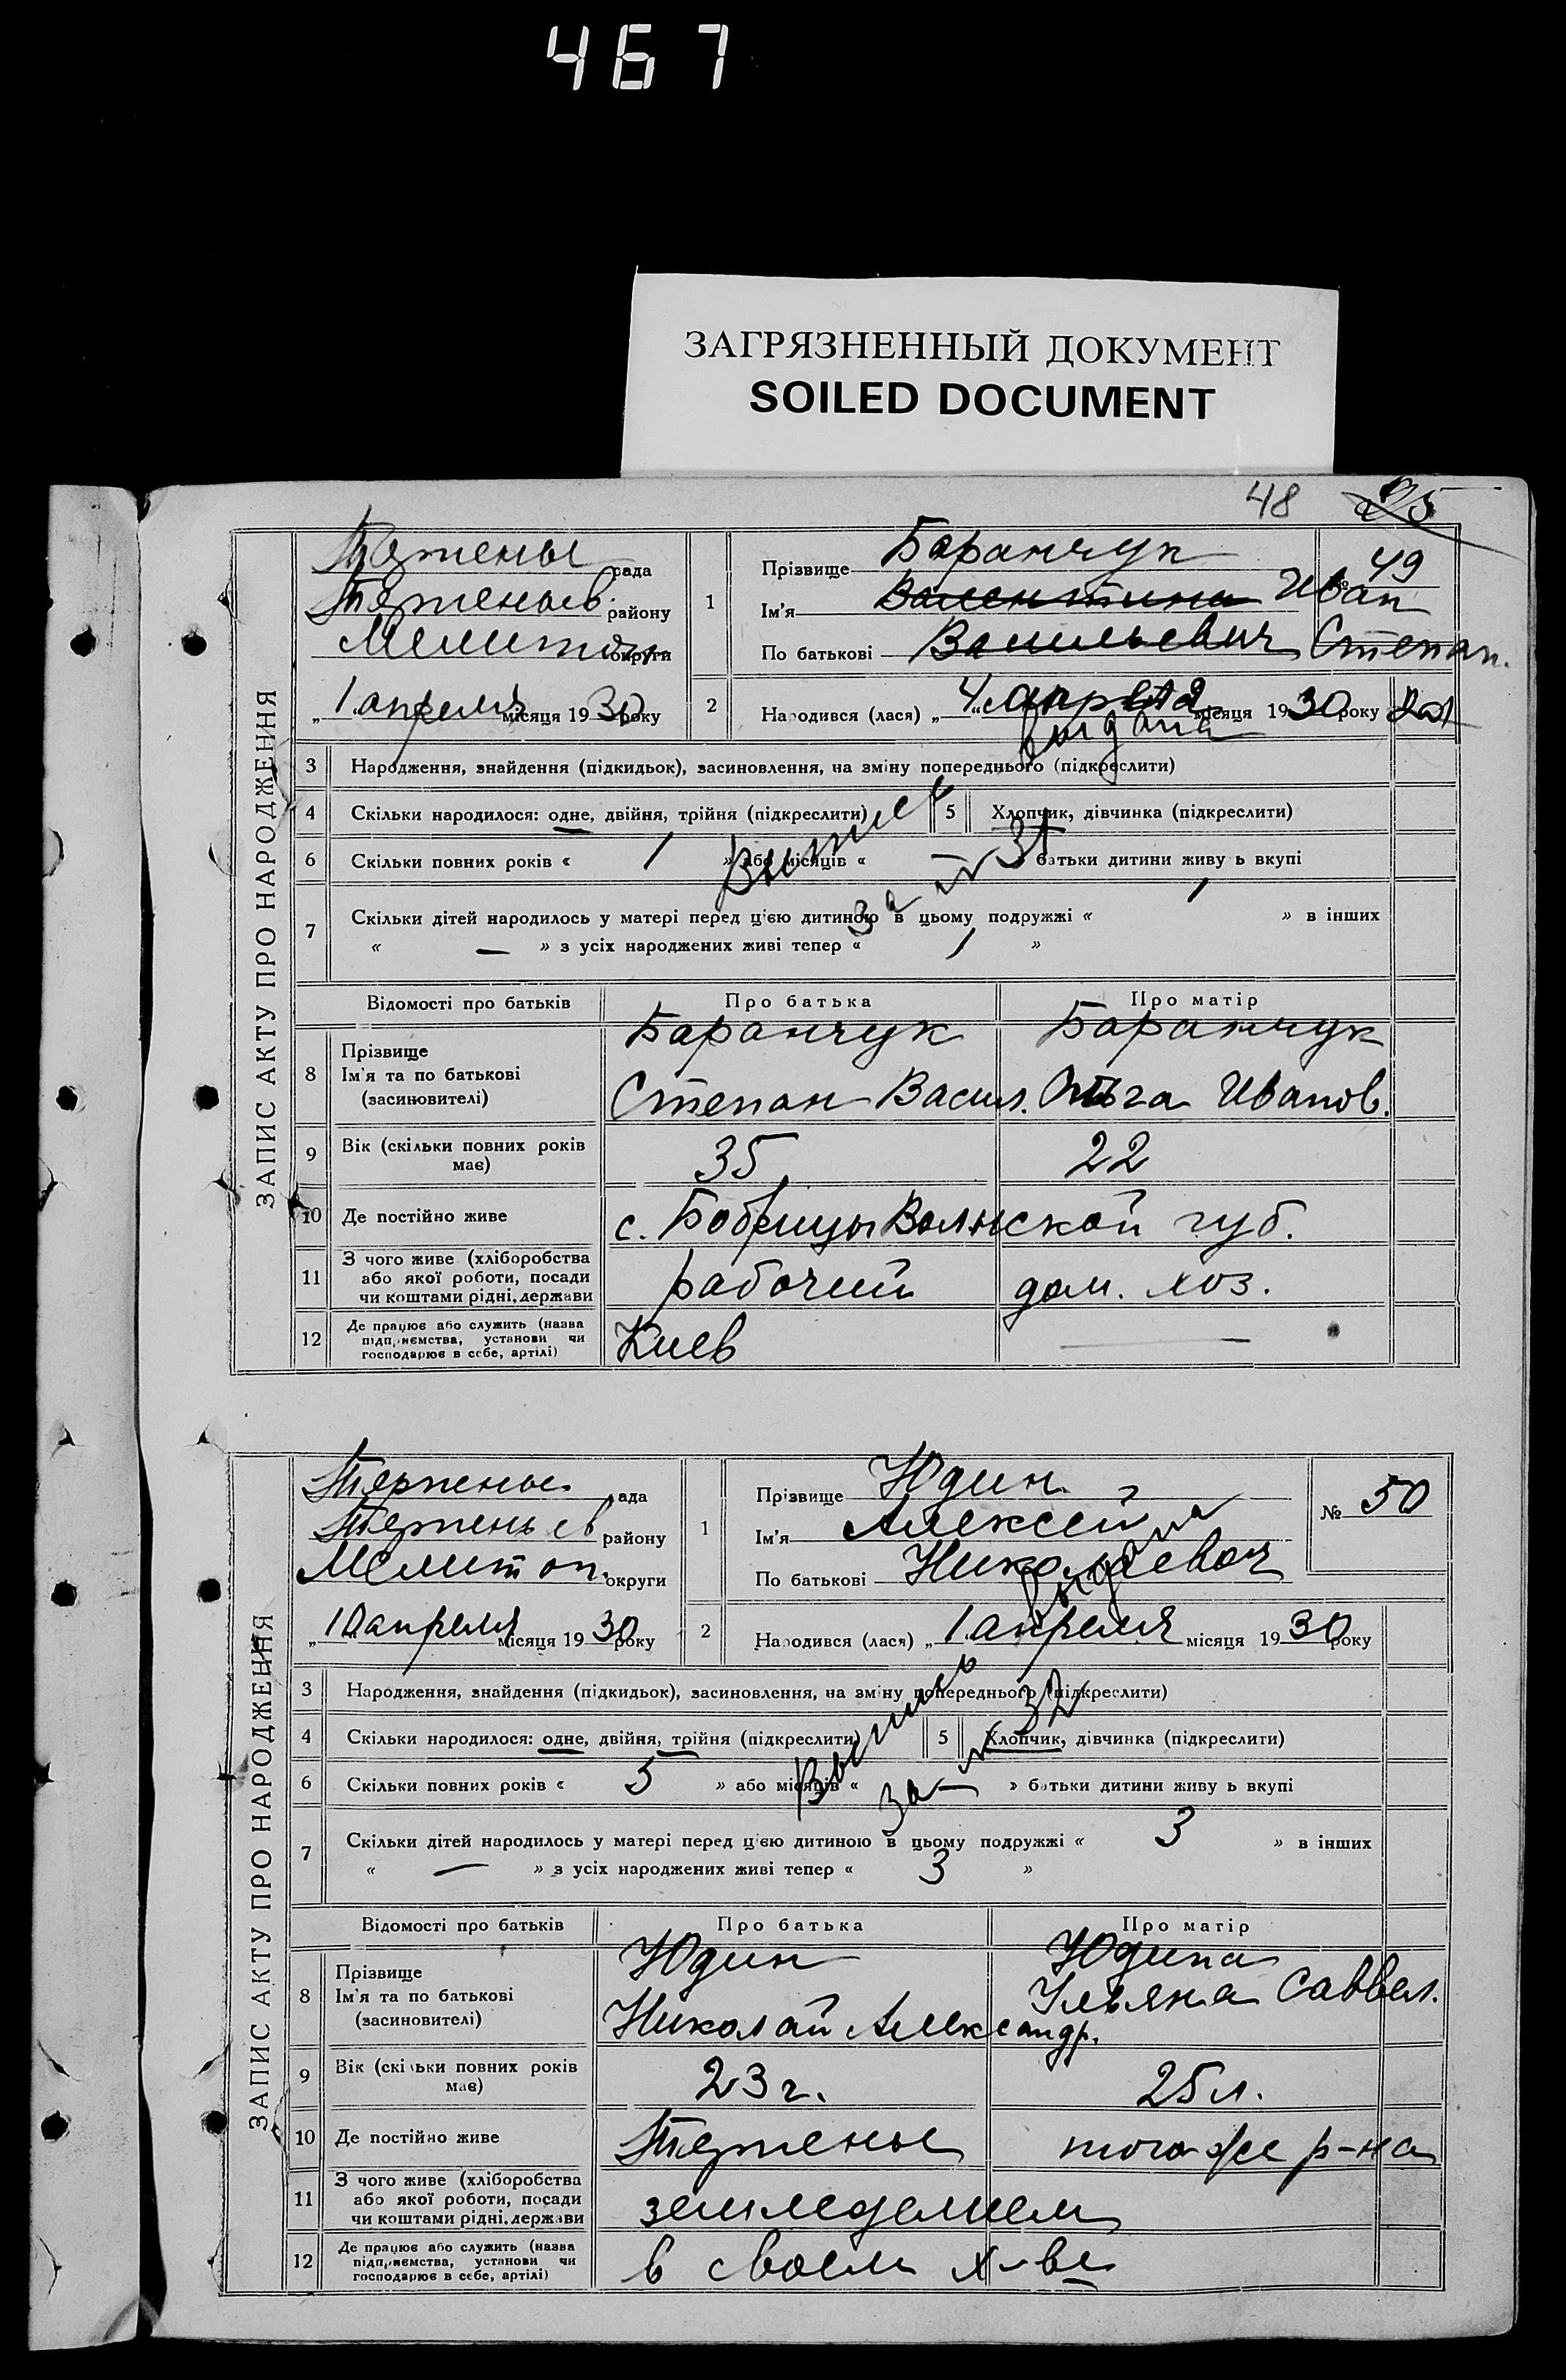 467
ЗАГРЯЗНЕННЫЙ ДОКУМЕНТ
SOILED DOCUMENT
48
ЗАПИС АКТУ ПРО НАРОДЖЕННЯ
рада
району
Мелитоп округи
„1“ апреля місяця 1930 року
1
Прізвище Баранчук
Ім'я Валентина Иван
По батькові Васильевич Степан.
№ 49
2
Народився (лася) „4“ апреля місяця 1930 року
выдана
3 Народження, знайдення (підкидьок), засиновлення, на зміну попереднього (підкреслити)
4 Скільки народилося: одне, двійня, трійня (підкреслити) 5 Хлопчик, дівчинка (підкреслити)
6 Скільки повних років « 1 » або місяців « — » батьки дитини живуть вкупі
Выпись за № 31
7 Скільки дітей народилось у матері перед цією дитиною в цьому подружжі « 1 » в інших
« — » з усіх народжених живі тепер « 1 »
Відомості про батьків Про батька Про матір
8 Прізвище Ім'я та по батькові (засиновителі)
Баранчук Баранчук
Степан Васил. Ольга Иванов.
9 Вік (скільки повних років має) 35 22
10 Де постійно живе с. Бобрицы Волынской губ.
11 З чого живе (хліборобства
або якої роботи, посади
чи коштами рідні, держави
рабочий дом. хоз.
12 Де працює або служить (назва
підприємства, установи чи
господарює в себе, артілі)
Киев —
ЗАПИС АКТУ ПРО НАРОДЖЕННЯ
Терпенье рада
Терпеньев району
Мелитоп. округи
„10“ апреля місяця 1930 року
1
Прізвище Юдин
Ім'я Алексей
По батькові Николаевич
№ 50
2
Народився (лася) „1“ апреля місяця 1930 року
выдана
3 Народження, знайдення (підкидьок), засиновлення, на зміну попереднього (підкреслити)
4 Скільки народилося: одне, двійня, трійня (підкреслити) 5 Хлопчик, дівчинка (підкреслити)
6 Скільки повних років « 5 » або місяців « — » батьки дитини живуть вкупі
Выпись за № 32
7 Скільки дітей народилось у матері перед цією дитиною в цьому подружжі « 3 » в інших
« — » з усіх народжених живі тепер « 3 »
Відомості про батьків Про батька Про матір
8 Прізвище Ім'я та по батькові (засиновителі)
Юдин Юдина
Николай Александр. Ульяна Саввел.
9 Вік (скільки повних років має) 23 г. 25 л.
10 Де постійно живе Терпенье того же р-на
11 З чого живе (хліборобства
або якої роботи, посади
чи коштами рідні, держави
земледелием
12 Де працює або служить (назва
підприємства, установи чи
господарює в себе, артілі)
в своем х-ве